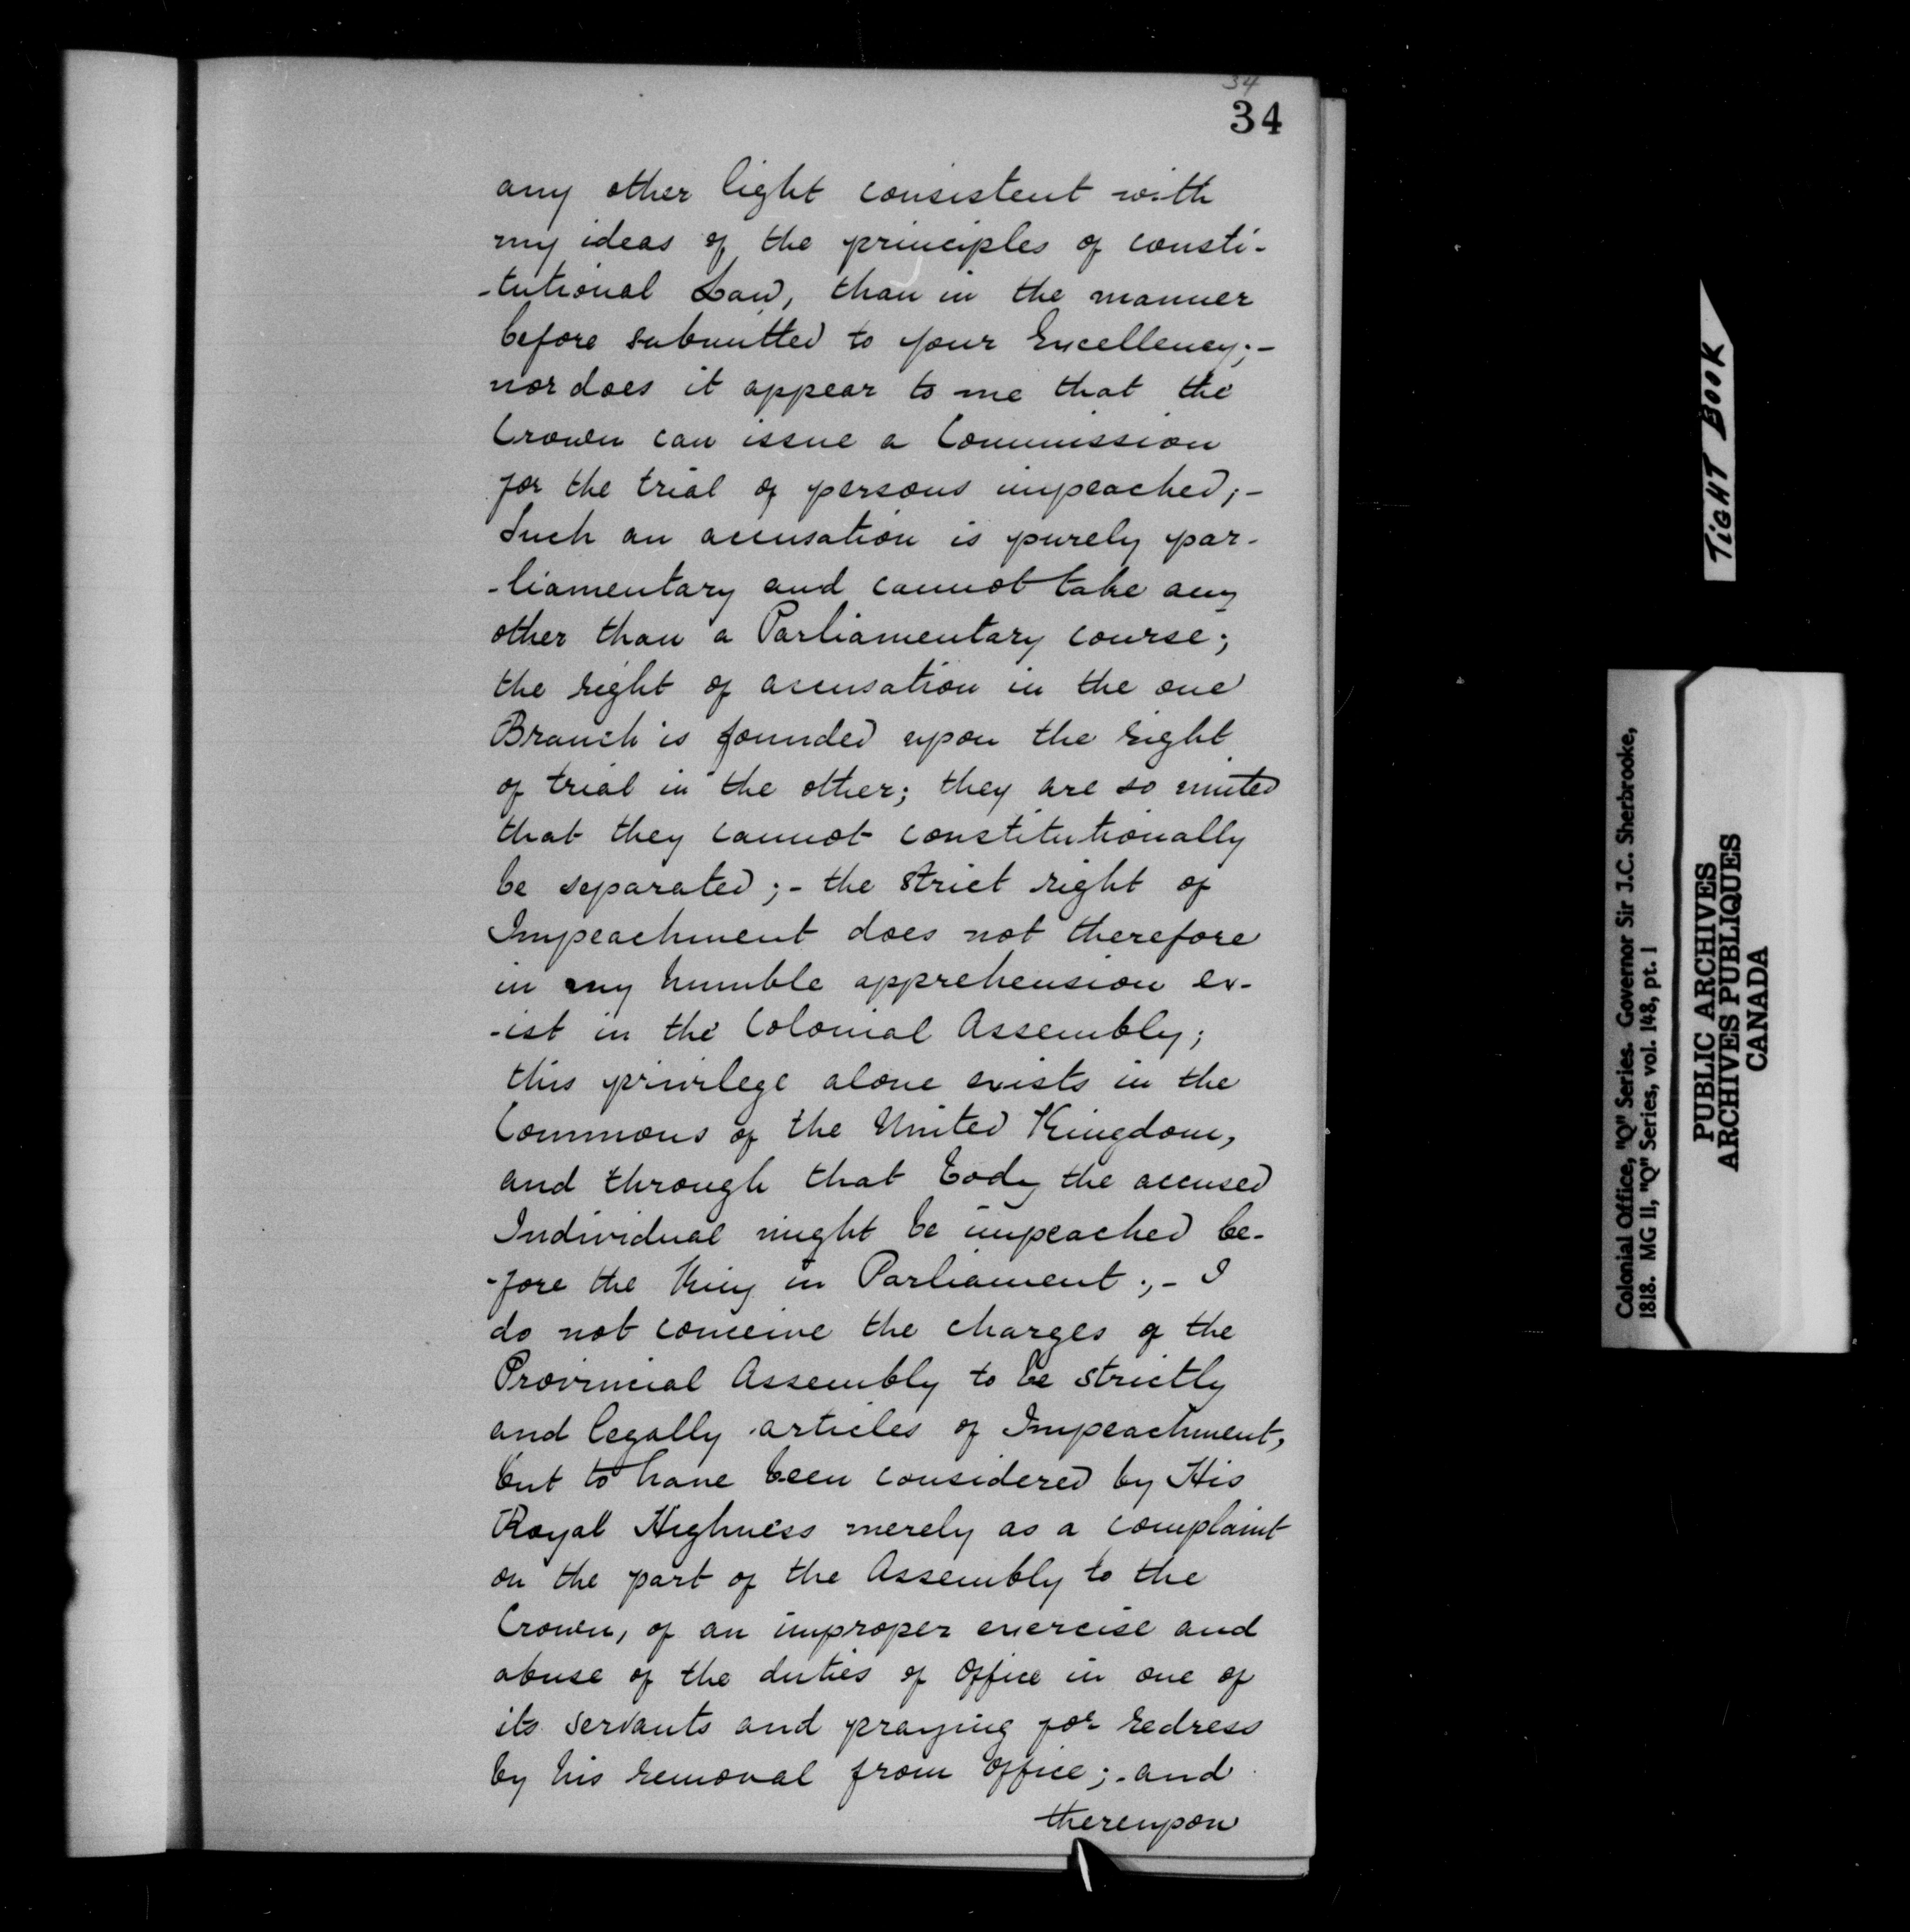 34
34
any other light consistent with
my ideas of the principles of consti-
-tutional Law, than in the manner
before submitted to your Excellency;-
nor does it appear to me that the
Crown can issue a Commission
for the trial of persons impeached;-
Such an accusation is purely par-
-liamentary and cannot take any
other than a Parliamentary course;
the right of accusation in the one
Branch is founded upon the right
of trial in the other; they are so united
that they cannot constitutionally
be separated;- the strict right of
Impeachment does not therefore
in my humble apprehension ex-
-ist in the Colonial Assembly;
this privilege alone exists in the
Commons of the United Kingdom,
and through that Body the accused
Individual might be impeached be-
-fore the King in Parliament;- I
do not conceive the charges of the
Provincial Assembly to be strictly
and legally articles of Impeachment,
but to have been considered by His
Royal Highness merely as a complaint
on the part of the Assembly to the
Crown, of an improper exercise and
abuse of the duties of Office in one of
its servants and praying for redress
by his removal from Office;- and
thereupon
TIGHT BOOK
Colonial Office, "Q" Series. Governor Sir J.C. Sherbrooke,
1818. MG 11, "Q" Series, vol. 148, pt. 1
PUBLIC ARCHIVES
ARCHIVES PUBLIQUES
CANADA